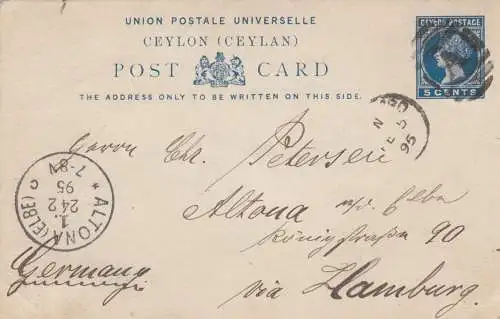 UNION POSTALE UNIVERSELLE
CEYLON (CEYLAN)
POST CARD
THE ADDRESS ONLY TO BE WRITTEN ON THIS SIDE.
CEYLON POSTAGE
5 CENTS
95
Herrn Chr. Petersen
Altona a/d. Elbe
Königstraße 90
via Hamburg.
Germany
ALTONA (ELBE)
1.
24 2
95
7-8N
c